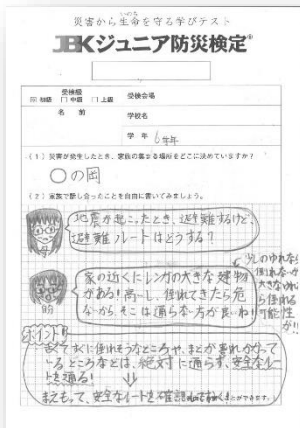 災害から生命を守る学びテスト
いのち
JBKジュニア防災検定®
受検級
初級 □ 中級 □ 上級
受検会場
名 前
学校名
学 年 6学年
(1) 災害が発生したとき、家族の集まる場所をどこに決めていますか?
○の岡
(2) 家族で話し合ったことを自由に書いてみましょう。
地震が起こったとき、避難するけど、
避難ルートはどうする?
家の近くにレンガの大きな建物
がある!万一、倒れてきたら危
ないから、そこは通らない方が良いね!
自分
少しのゆれなら
倒れないが
大きなゆれ
なら倒れる
可能性
が!!
ポイント!!
古くてすぐに倒れそうなところや、まどが割れかかって
いるところなどは、絶対に通らず、安全なルー
トを通る!
まえもって、安全なルートを確認して
ができます。